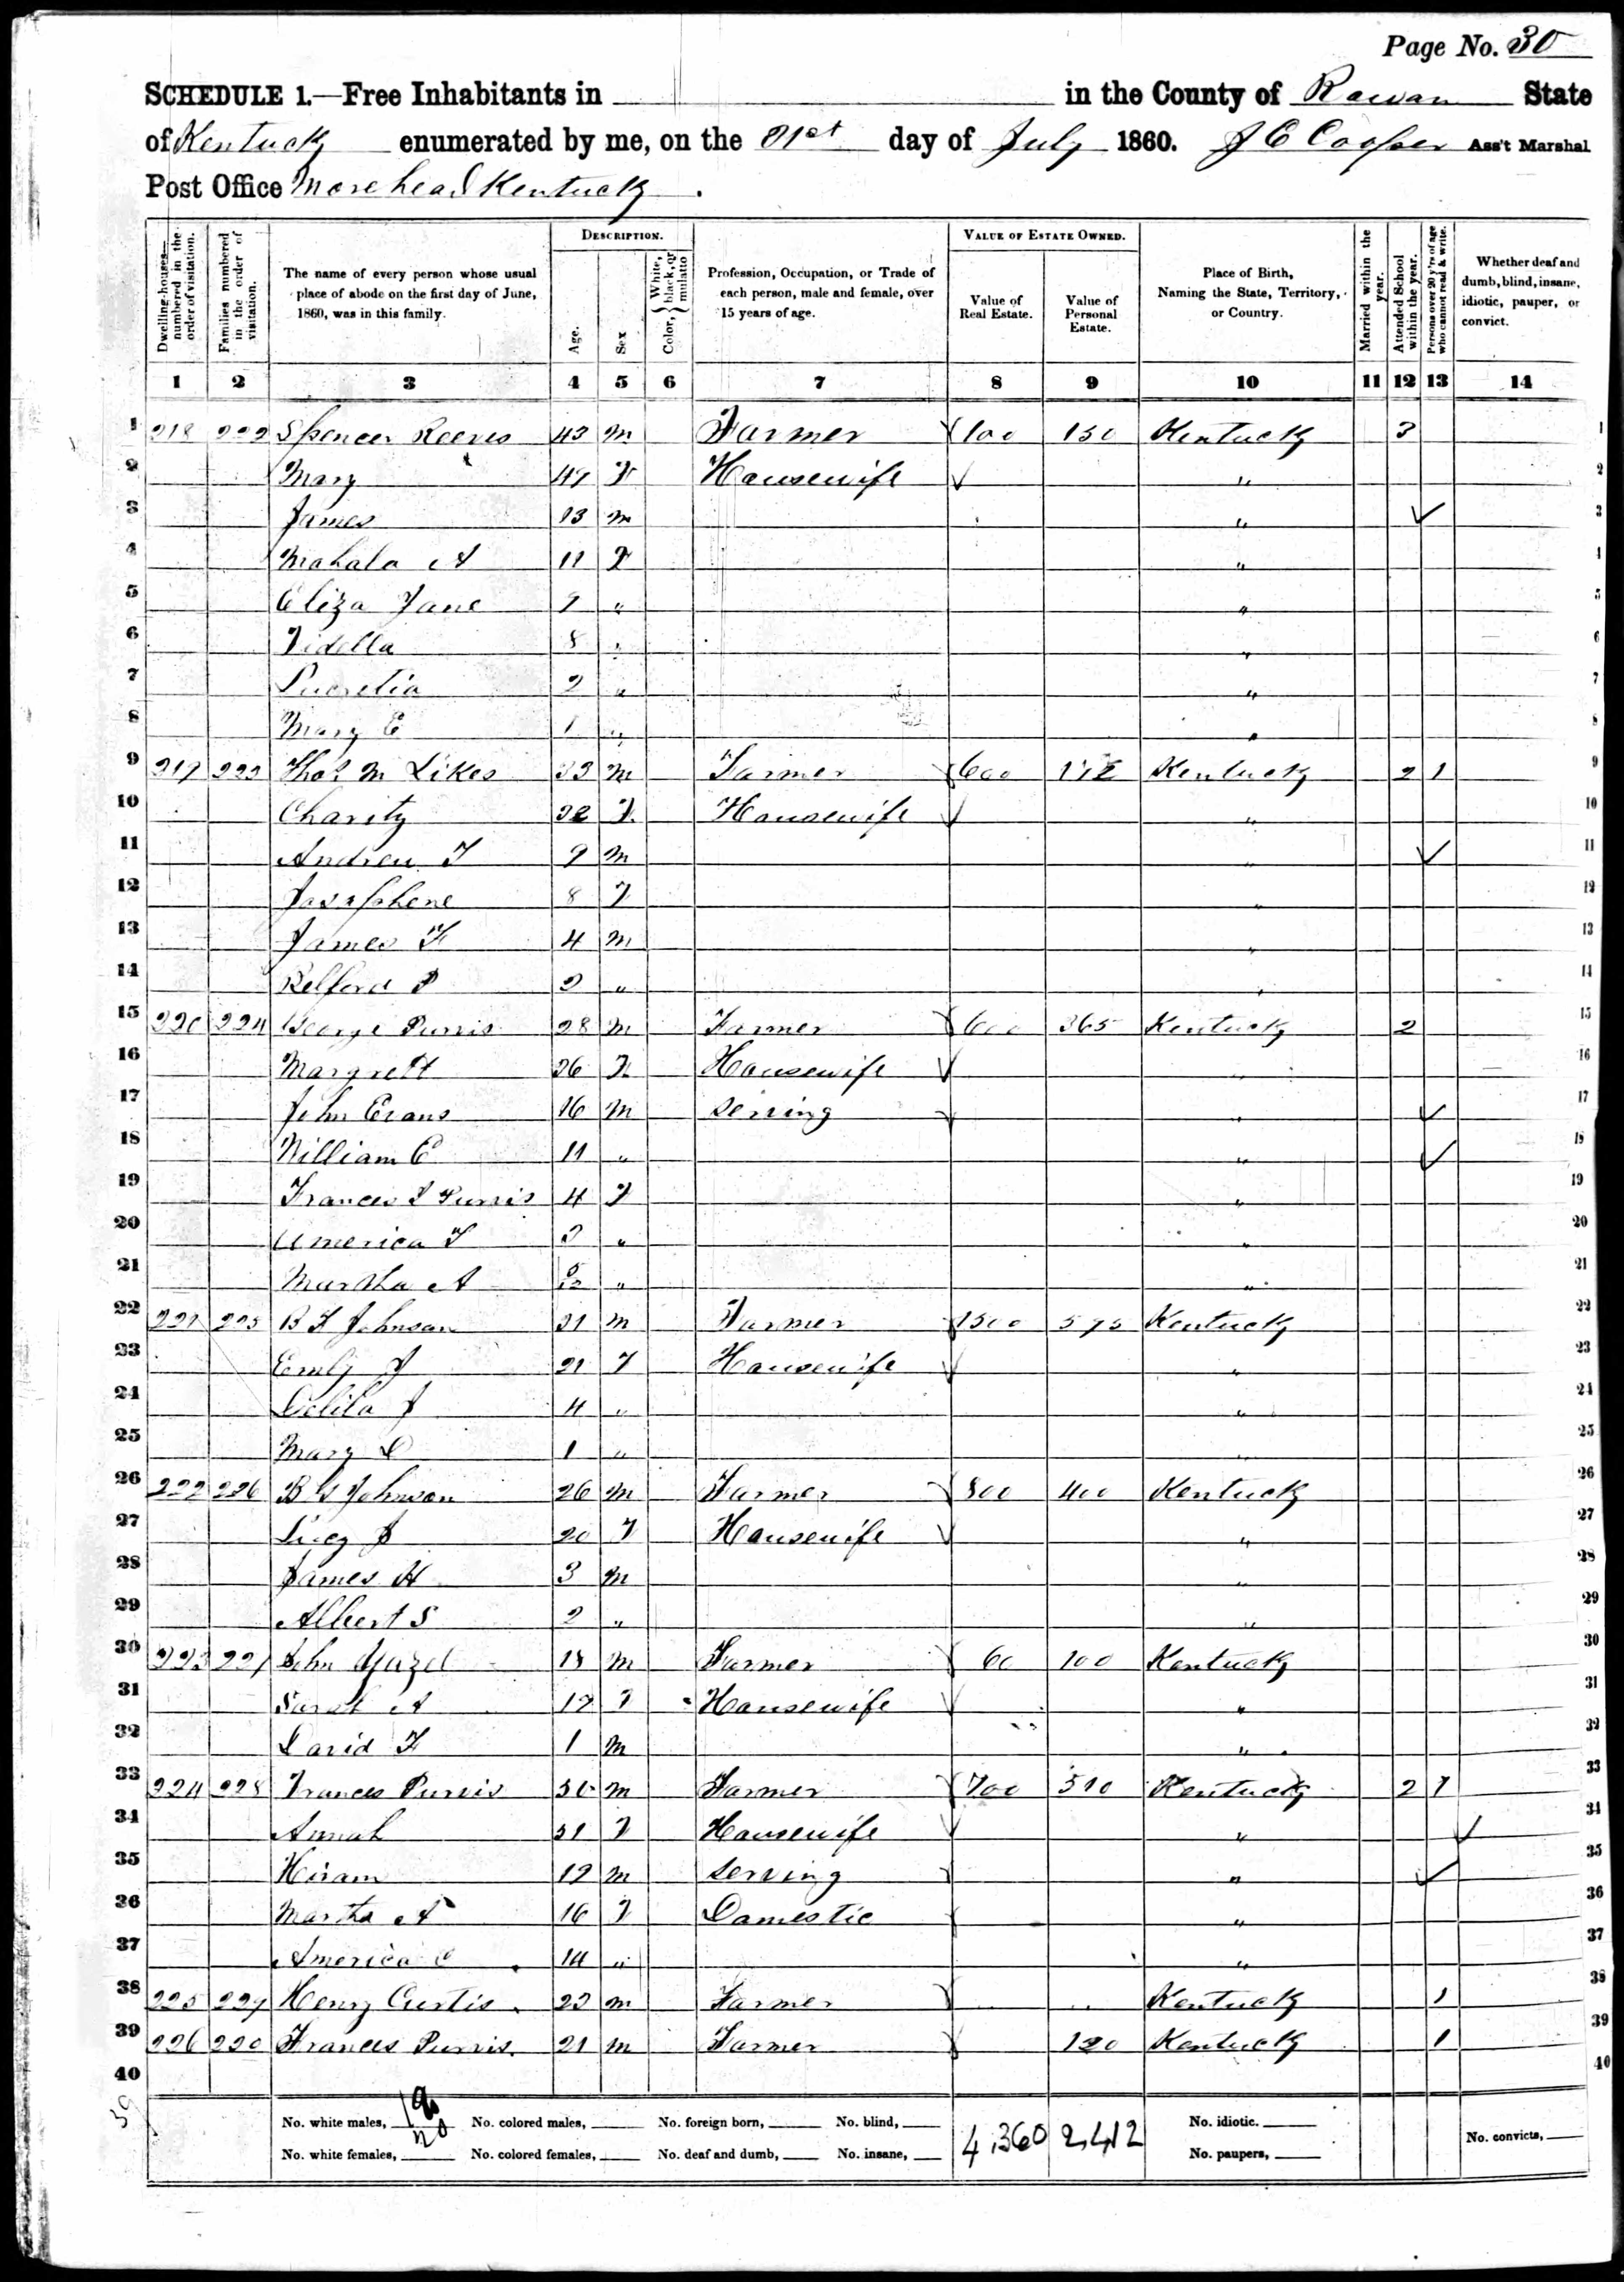 Page No. 30
SCHEDULE 1.—Free Inhabitants in in the County of Rowan State
of Kentucky enumerated by me, on the 21st day of July 1860. J C Cooper Ass't Marshal
Post Office Morehead Kentucky.
Dwelling-houses—numbered in the order of visitation.
Families numbered in the order of visitation.
The name of every person whose usual place of abode on the first day of June, 1860, was in this family.
DESCRIPTION.
Age.
Sex
Color, { White, black, or mulatto
Profession, Occupation, or Trade of each person, male and female, over 15 years of age.
VALUE OF ESTATE OWNED.
Value of Real Estate.
Value of Personal Estate.
Place of Birth, Naming the State, Territory, or Country.
Married within the year.
Attended School within the year.
Persons over 20 y'rs of age who cannot read & write.
Whether deaf and dumb, blind, insane, idiotic, pauper, or convict.
1 2 3 4 5 6 7 8 9 10 11 12 13 14
1 218 222 Spencer Reeves 43 m Farmer 100 150 Kentucky 3 1
2 Mary 49 F Housewife " 2
3 James 13 m " 3
4 Mahala A 11 F " 4
5 Eliza Jane 9 " " 5
6 Fidella 8 " " 6
7 Lucretia 2 " " 7
8 Mary E 1 " " 8
9 219 223 Thos M Likes 33 m Farmer 600 Kentucky 2 1 9
10 Charity F Housewife " 10
11 Andrew J 9 m " 11
12 Josephene 8 F " 12
13 James F 4 m " 13
14 Relford P 2 " " 14
15 220 224 George Purvis 28 m Farmer 600 365 Kentucky 2 15
16 Margrett 26 F Housewife " 16
17 John Evans 16 m Serving " 17
18 William E 11 " " 18
19 Frances J Purvis 4 F " 19
20 America F " " 20
21 Martha A " " 21
22 221 225 B F Johnson 31 m Farmer 1500 Kentucky 22
23 Emly J 21 F Housewife " 23
24 Delila J 4 " " 24
25 Mary D 1 " " 25
26 222 226 B G Johnson 26 m Farmer 800 400 Kentucky 26
27 Lucy J 20 F Housewife " 27
28 James H 3 m " 28
29 Albert S 2 " " 29
30 223 227 John 18 m Farmer 60 100 Kentucky 30
31 Sarah A 17 F Housewife " 31
32 David F 1 m " 32
33 224 228 Frances Purvis 50 m Farmer 700 510 Kentucky 2 1 33
34 Annah 51 F Housewife " 34
35 Hiram 19 m Serving " 35
36 Martha A 16 F Domestic " 36
37 America E 14 " " 37
38 225 229 Henry Curtis 23 m Farmer Kentucky 1 38
39 226 230 Frances Purvis 21 m Farmer 120 Kentucky 1 39
40 40
39
No. white males, 19 No. colored males, No. foreign born, No. blind, 4,360 2,412 No. idiotic. No. convicts,
No. white females, 20 No. colored females, No. deaf and dumb, No. insane, No. paupers,